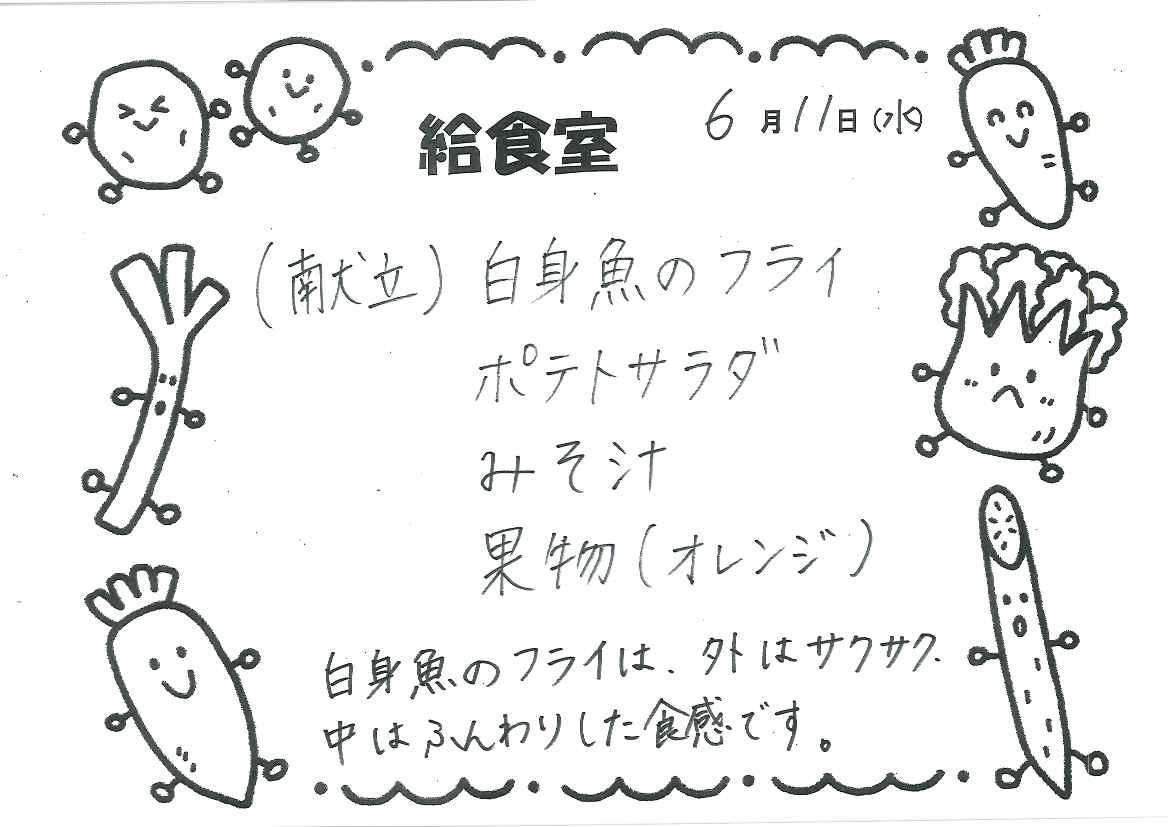 給食室 6月11日(水)
(献立)白身魚のフライ
ポテトサラダ
みそ汁
果物(オレンジ)
白身魚のフライは、外はサクサク、
中はふんわりした食感です。